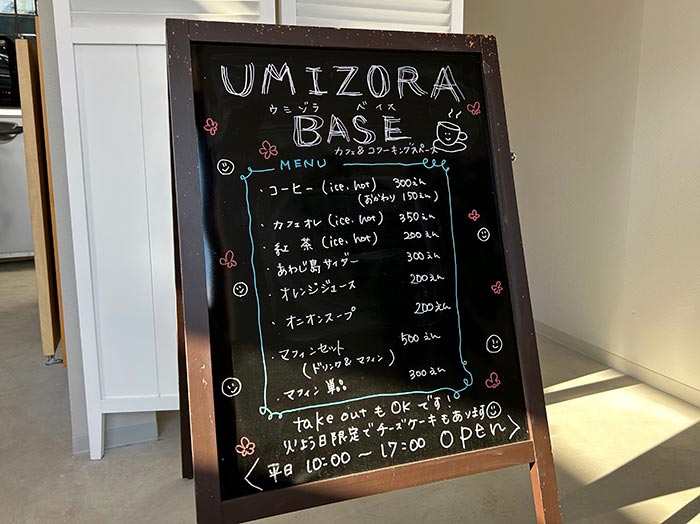 UMIZORA
ウミゾラ ベイス
BASE
カフェ&コワーキングスペース
MENU
・コーヒー (ice, hot) 300えん
(おかわり 150えん)
・カフェオレ (ice, hot) 350えん
・紅茶 (ice, hot) 200えん
・あわじ島サイダー 300えん
・オレンジジュース 200えん
・オニオンスープ 200えん
・マフィンセット 500えん
(ドリンク&マフィン)
・マフィン単品 300えん
take outもOKです!
火よう日限定でチーズケーキもあります
<平日 10:00〜17:00 open>